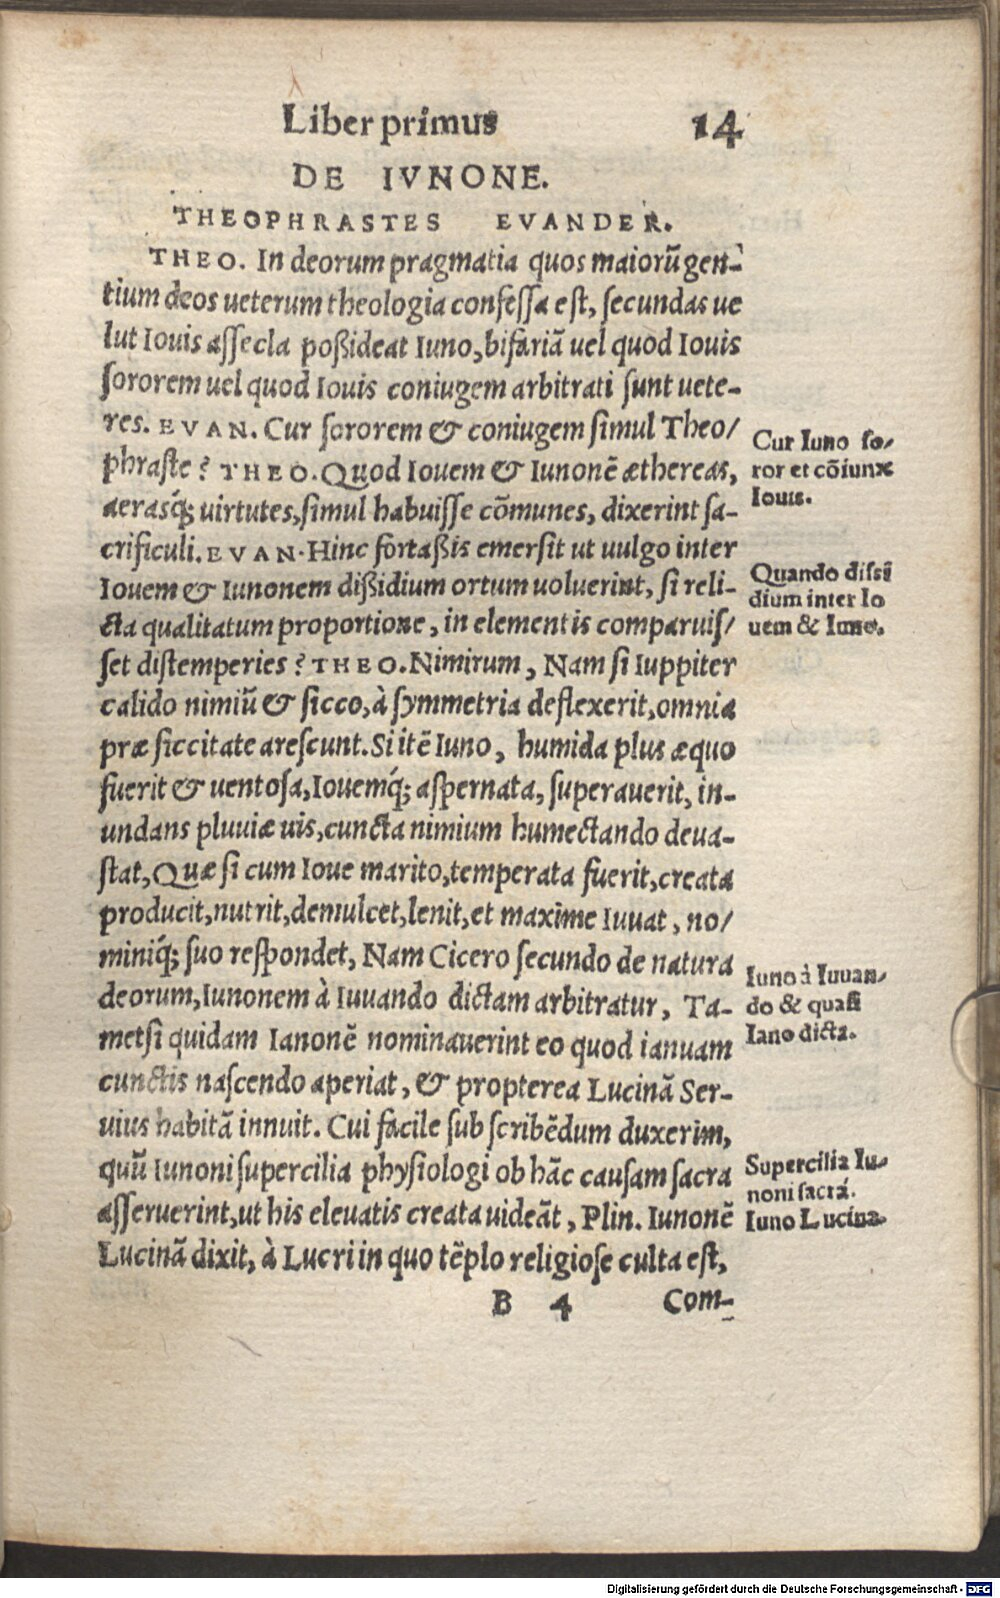 Liber primus 14
DE IVNONE.
THEOPHRASTES EVANDER.
THEO. In deorum pragmatia quos maiorũ gen-
tium deos ueterum theologia confessa est, secundas ue
lut Iouis assecla poßideat Iuno, bifariã uel quod Iouis
sororem uel quod Iouis coniugem arbitrati sunt uete-
res. EVAN. Cur sororem & coniugem simul Theo/
phraste? THEO. Quod Iouem & Iunonẽ æthereas,
aerasq́; uirtutes, simul habuisse cõmunes, dixerint sa-
crificuli. EVAN. Hinc fortaßis emersit ut uulgo inter
Iouem & Iunonem dißidium ortum uoluerint, si reli-
cta qualitatum proportione, in elementis comparuis/
set distemperies? THEO. Nimirum, Nam si Iuppiter
calido nimiũ & sicco, à symmetria deflexerit, omnia
præ siccitate arescunt. Si itẽ Iuno, humida plus æquo
fuerit & uentosa, Iouemq́; aspernata, superauerit, in-
undans pluuiæ uis, cuncta nimium humectando deua-
stat, Quæ si cum Ioue marito, temperata fuerit, creata
producit, nutrit, demulcet, lenit, et maxime Iuuat, no/
miniq́; suo respondet, Nam Cicero secundo de natura
deorum, Iunonem à Iuuando dictam arbitratur, Ta-
metsi quidam Ianonẽ nominauerint eo quod ianuam
cunctis nascendo aperiat, & propterea Lucinã Ser-
uius habitã innuit. Cui facile sub scribẽdum duxerim,
quũ Iunoni supercilia physiologi ob hãc causam sacra
asseruerint, ut his eleuatis creata uideãt, Plin. Iunonẽ
Lucinã dixit, à Lucri in quo tẽplo religiose culta est,
B 4 Com-
Cur Iuno so-
ror et cõiunx
Iouis.
Quando dissi
dium inter Io
uem & Iuno.
Iuno à Iuuan-
do & quasi
Iano dicta.
Supercilia Iu-
noni sacra.
Iuno Lucina.
Digitalisierung gefördert durch die Deutsche Forschungsgemeinschaft - DFG